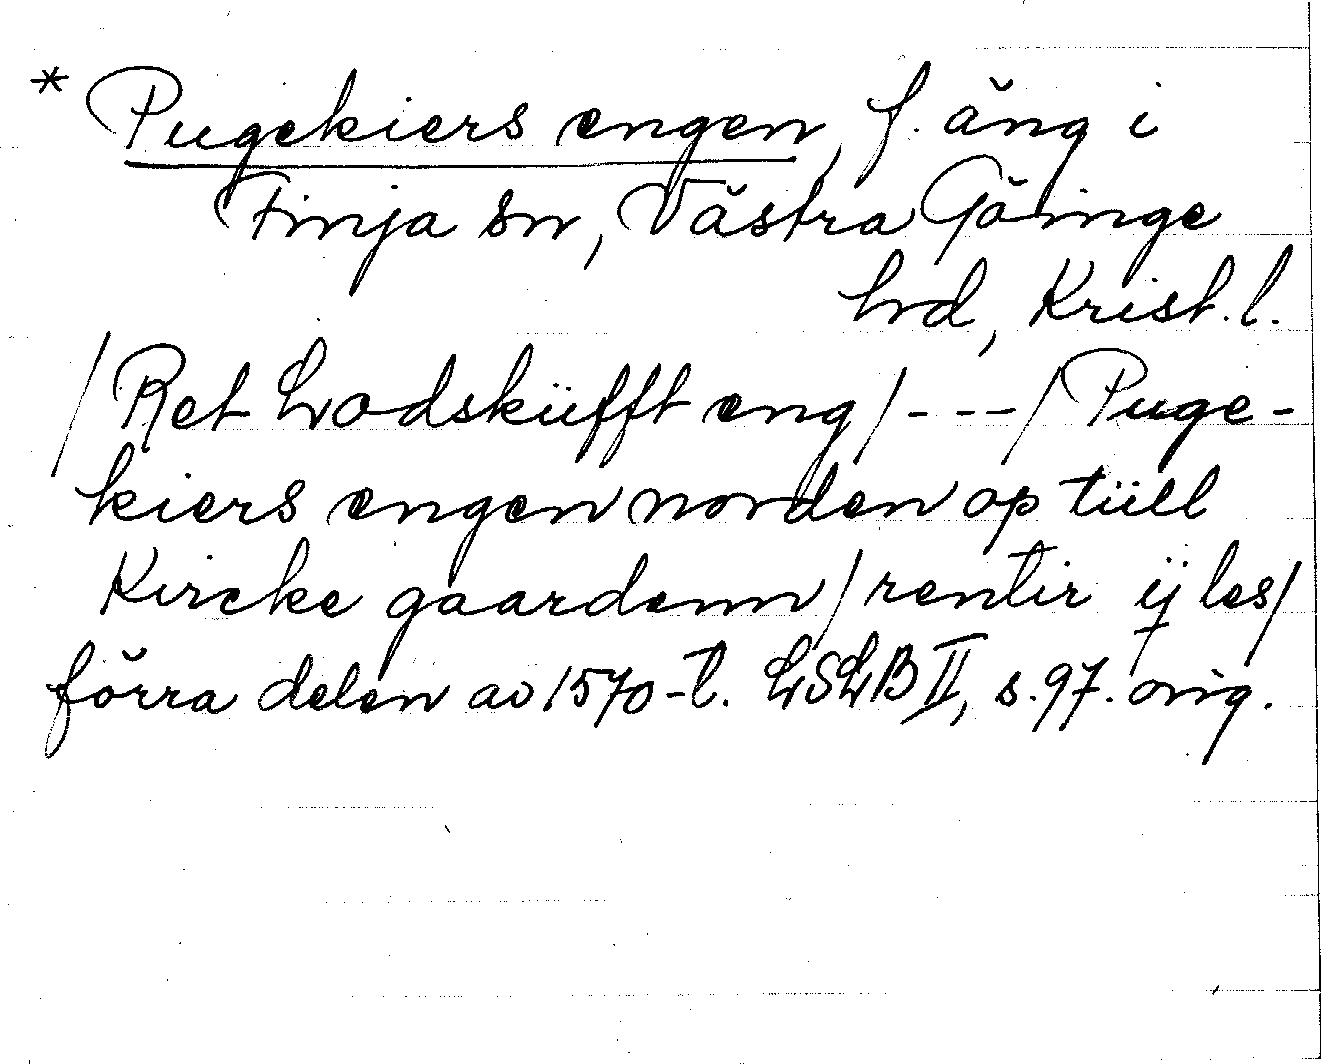 * Pugekiers engen, f. äng i
Finja sn, Västra Göinge
hd, Krist. l.
/Ret hodsküfft eng/---/Puge-
kiers engen norden op tüll
Kircke gaardenn/rentir ij les/
förra delen av 1570-t. LSLB II, s. 97. orig.